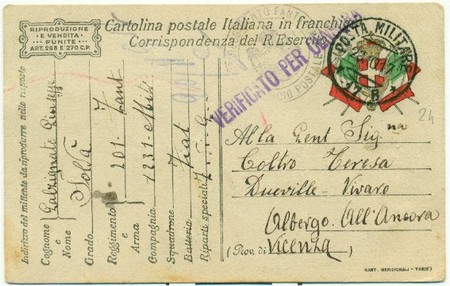 RIPRODUZIONE
E VENDITA
PUNITE
ART. 268 E 270 C.P.
Cartolina postale Italiana in franchigia
Corrispondenza del R. Esercito
VERIFICATO PER
POSTA MILITARE
24
Indirizzo del mittente da riprodurre nella risposta
Cognome
e
Nome
Grado Soldà
Reggimento 201. Fant
e
Arma
Compagnia 1231 Mitr
Squadrone
Batteria Fiat
Riparte speciali
Alla Gent Sig.na
Coltro Teresa
Dueville-Vivaro
Albergo All'Ancora
(Prov. di Vicenza)